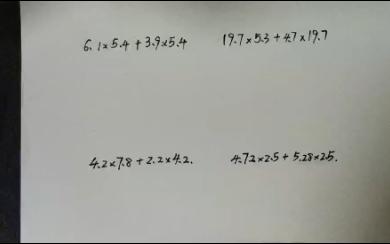 6.1×5.4+3.9×5.4 19.7×5.3+4.7×19.7
4.2×7.8+2.2×4.2. 4.72×2.5+5.28×2.5.